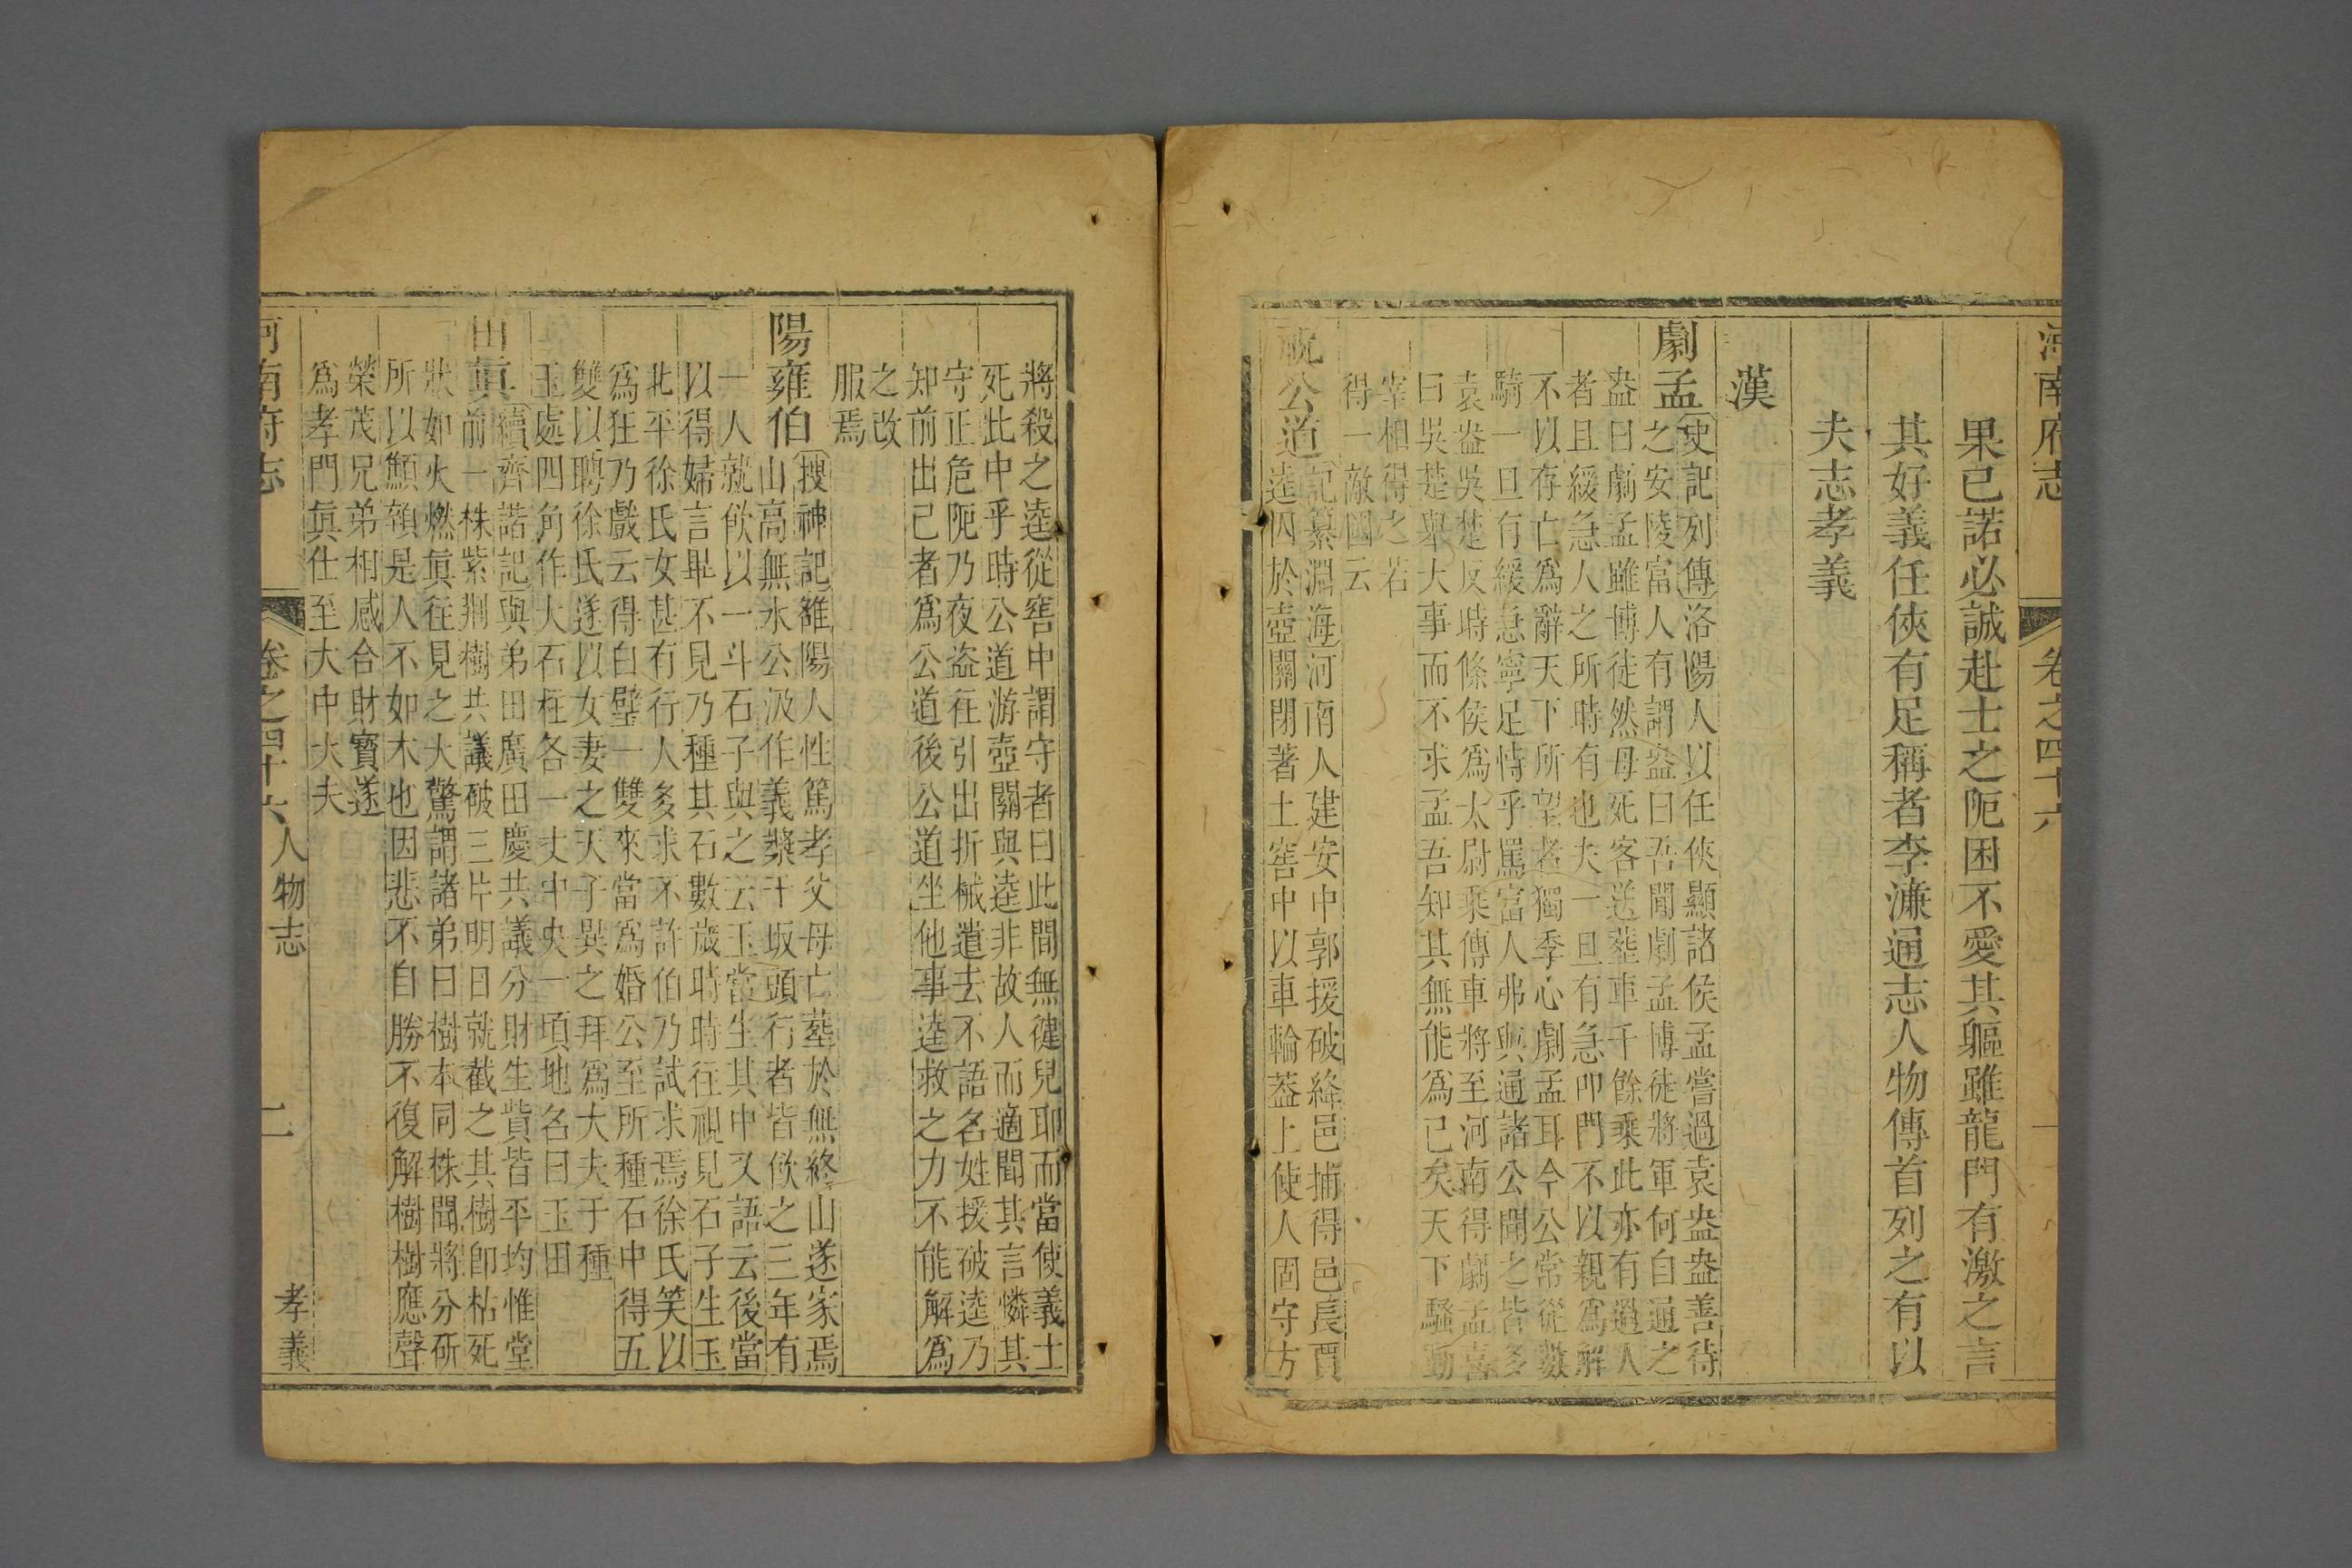 河南府志 卷之四十六 一
果已諾必誠赴士之阨困不愛其軀雖龍門有激之言
其好義任俠有足稱者李濂通志人物傳首列之有以
夫志孝義
漢
劇孟
史記列傳洛陽人以任俠顯諸侯孟嘗過袁盎盎善待
之安陵富人有謂盎曰吾聞劇孟博徒將軍何自通之
盎曰劇孟雖博徒然母死客送塟車千餘乘此亦有過人
者且緩急人之所時有也夫一旦有急叩門不以親爲解
不以存亡爲辭天下所望者獨季心劇孟耳今公常從數
騎一旦有緩急寧足恃乎罵富人弗與通諸公聞之皆多
袁盎吳楚反時條侯爲太尉乘傳車將至河南得劇孟喜
曰吳楚舉大事而不求孟吾知其無能爲已矣天下騷動
宰相得之若
得一敵國云
祝公道
記纂淵海河南人建安中郭援破絳邑捕得邑長賈
逵囚於壺關閉著土窖中以車輪葢上使人固守方
將殺之逵從窖中謂守者曰此間無健兒耶而當使義士
死此中乎時公道游壺關與逵非故人而適聞其言憐其
守正危阨乃夜盜往引出折械遣去不語名姓援破逵乃
知前出已者爲公道後公道坐他事逵救之力不能解爲
之改
服焉
陽雍伯
搜神記雒陽人性篤孝父母亡塟於無終山遂家焉
山高無水公汲作義漿于坂頭行者皆飲之三年有
一人就飲以一斗石子與之云玉當生其中又語云後當
以得婦言畢不見乃種其石數歲時時往視見石子生玉
北平徐氏女甚有行人多求不許伯乃試求焉徐氏笑以
爲狂乃戲云得白璧一雙來當爲婚公至所種石中得五
雙以聘徐氏遂以女妻之天子異之拜爲大夫于種
玉處四角作大石柱各一丈中央一頃地名曰玉田
田眞
續齊諧記與弟田廣田慶共議分財生貲皆平均惟堂
前一株紫荆樹共議破三片明日就截之其樹卽枯死
狀如火燃眞往見之大驚謂諸弟曰樹本同株聞將分斫
所以顦顇是人不如木也因悲不自勝不復解樹樹應聲
榮茂兄弟相感合財寶遂
爲孝門眞仕至大中大夫
河南府志 卷之四十六 人物志 二 孝義